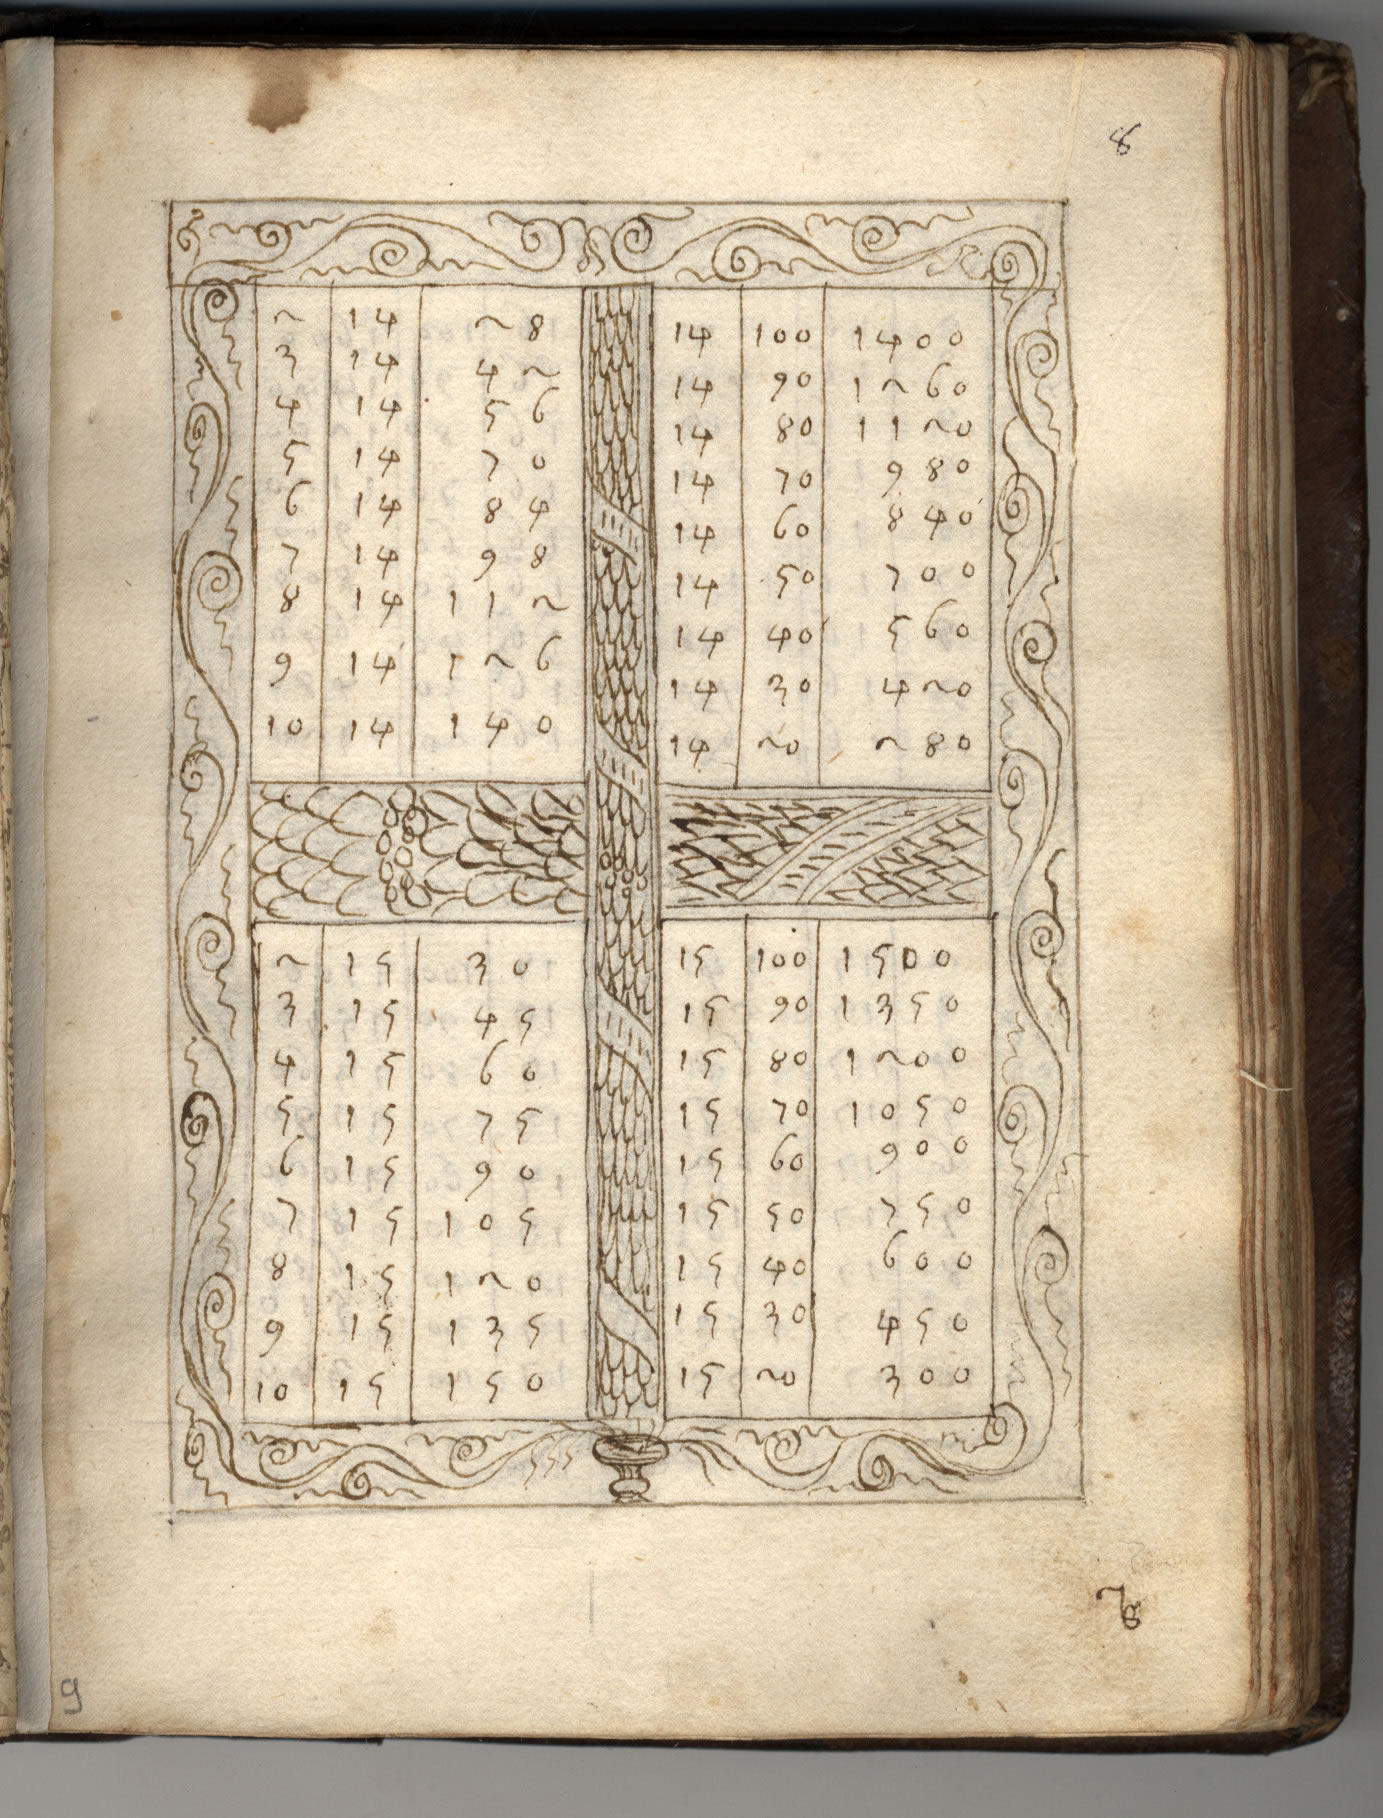 8
2 14 28
3 14 42
4 14 56
5 14 70
6 14 84
7 14 98
8 14 112
9 14 126
10 14 140
14 100 1400
14 90 1260
14 80 1120
14 70 980
14 60 840
14 50 700
14 40 560
14 30 420
14 20 280
2 15 30
3 15 45
4 15 60
5 15 75
6 15 90
7 15 105
8 15 120
9 15 135
10 15 150
15 100 1500
15 90 1350
15 80 1200
15 70 1050
15 60 900
15 50 750
15 40 600
15 30 450
15 20 300
9